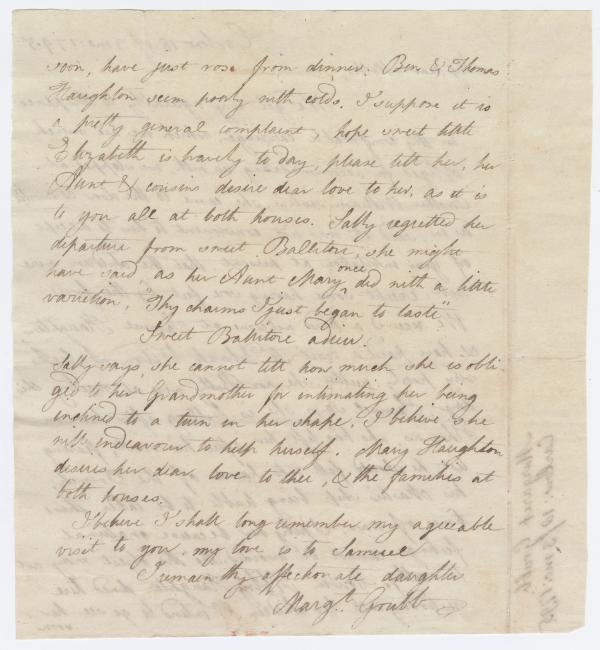 soon, have just rose from dinner. Ben & Thomas
Haughton seem poorly with colds. I suppose it is
a pretty general complaint, hope sweet little
Elizabeth is bravely to day, please tell her, her
Aunt & cousins desire dear love to her, as it is
to you all at both houses. Sally regretted her
departure from sweet Ballitore, she might
have said, as her Aunt Mary once did with a little
variation, "Thy charms I just began to taste"
Sweet Ballitore adieu.
Sally says, she cannot tell how much she is obli
ged to her Grandmother for intimating her being
inclined to a turn in her shape, I believe she
will endeavour to help herself. Mary Haughton
desires her dear love to thee, & the families at
both houses.
I believe I shall long remember my agreeable
visit to you, my love is to Samuel
I remain thy affectionate daughter
Margt. Grubb
Margaret Grubb